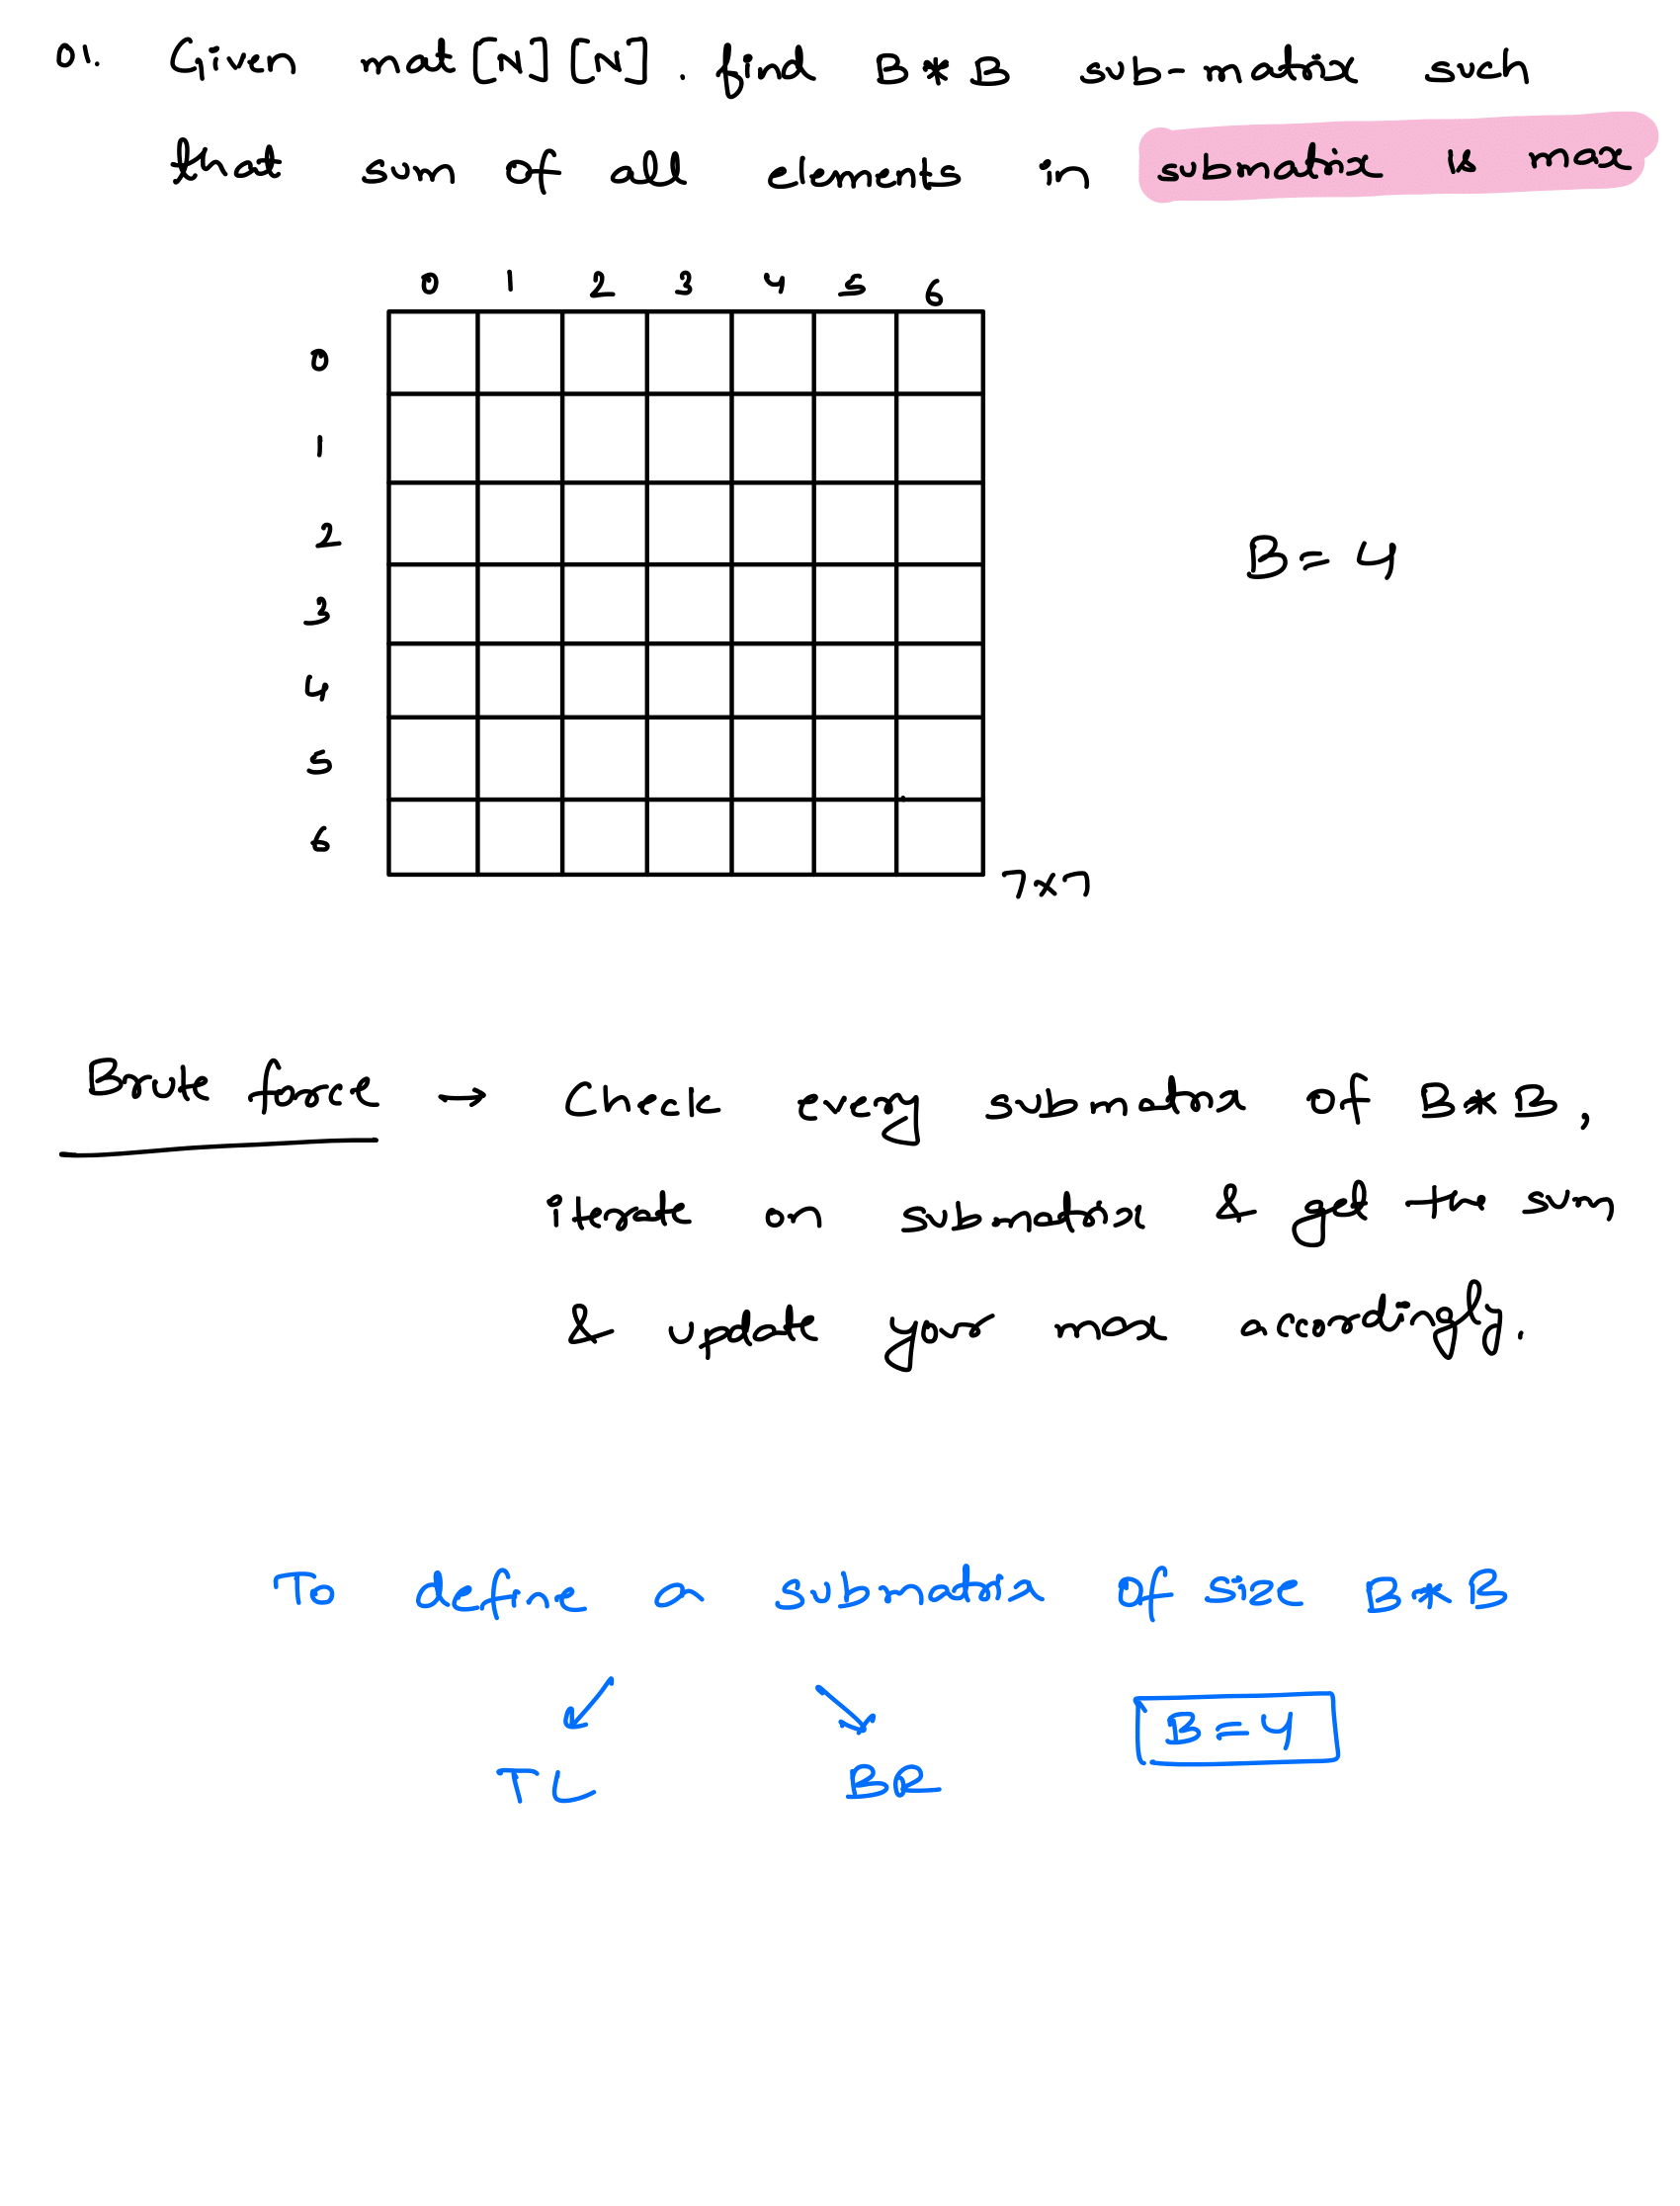 01. Given mat[N][N]. find B*B sub-matrix such
that sum of all elements in submatrix is max
0 1 2 3 4 5 6
0
1
2
B = 4
3
4
5
6
7x7
Brute force → Check every submatrix of B*B,
iterate on submatrix & get the sum
& update your max accordingly.
To define a submatrix of size B*B
TL BR B = 4